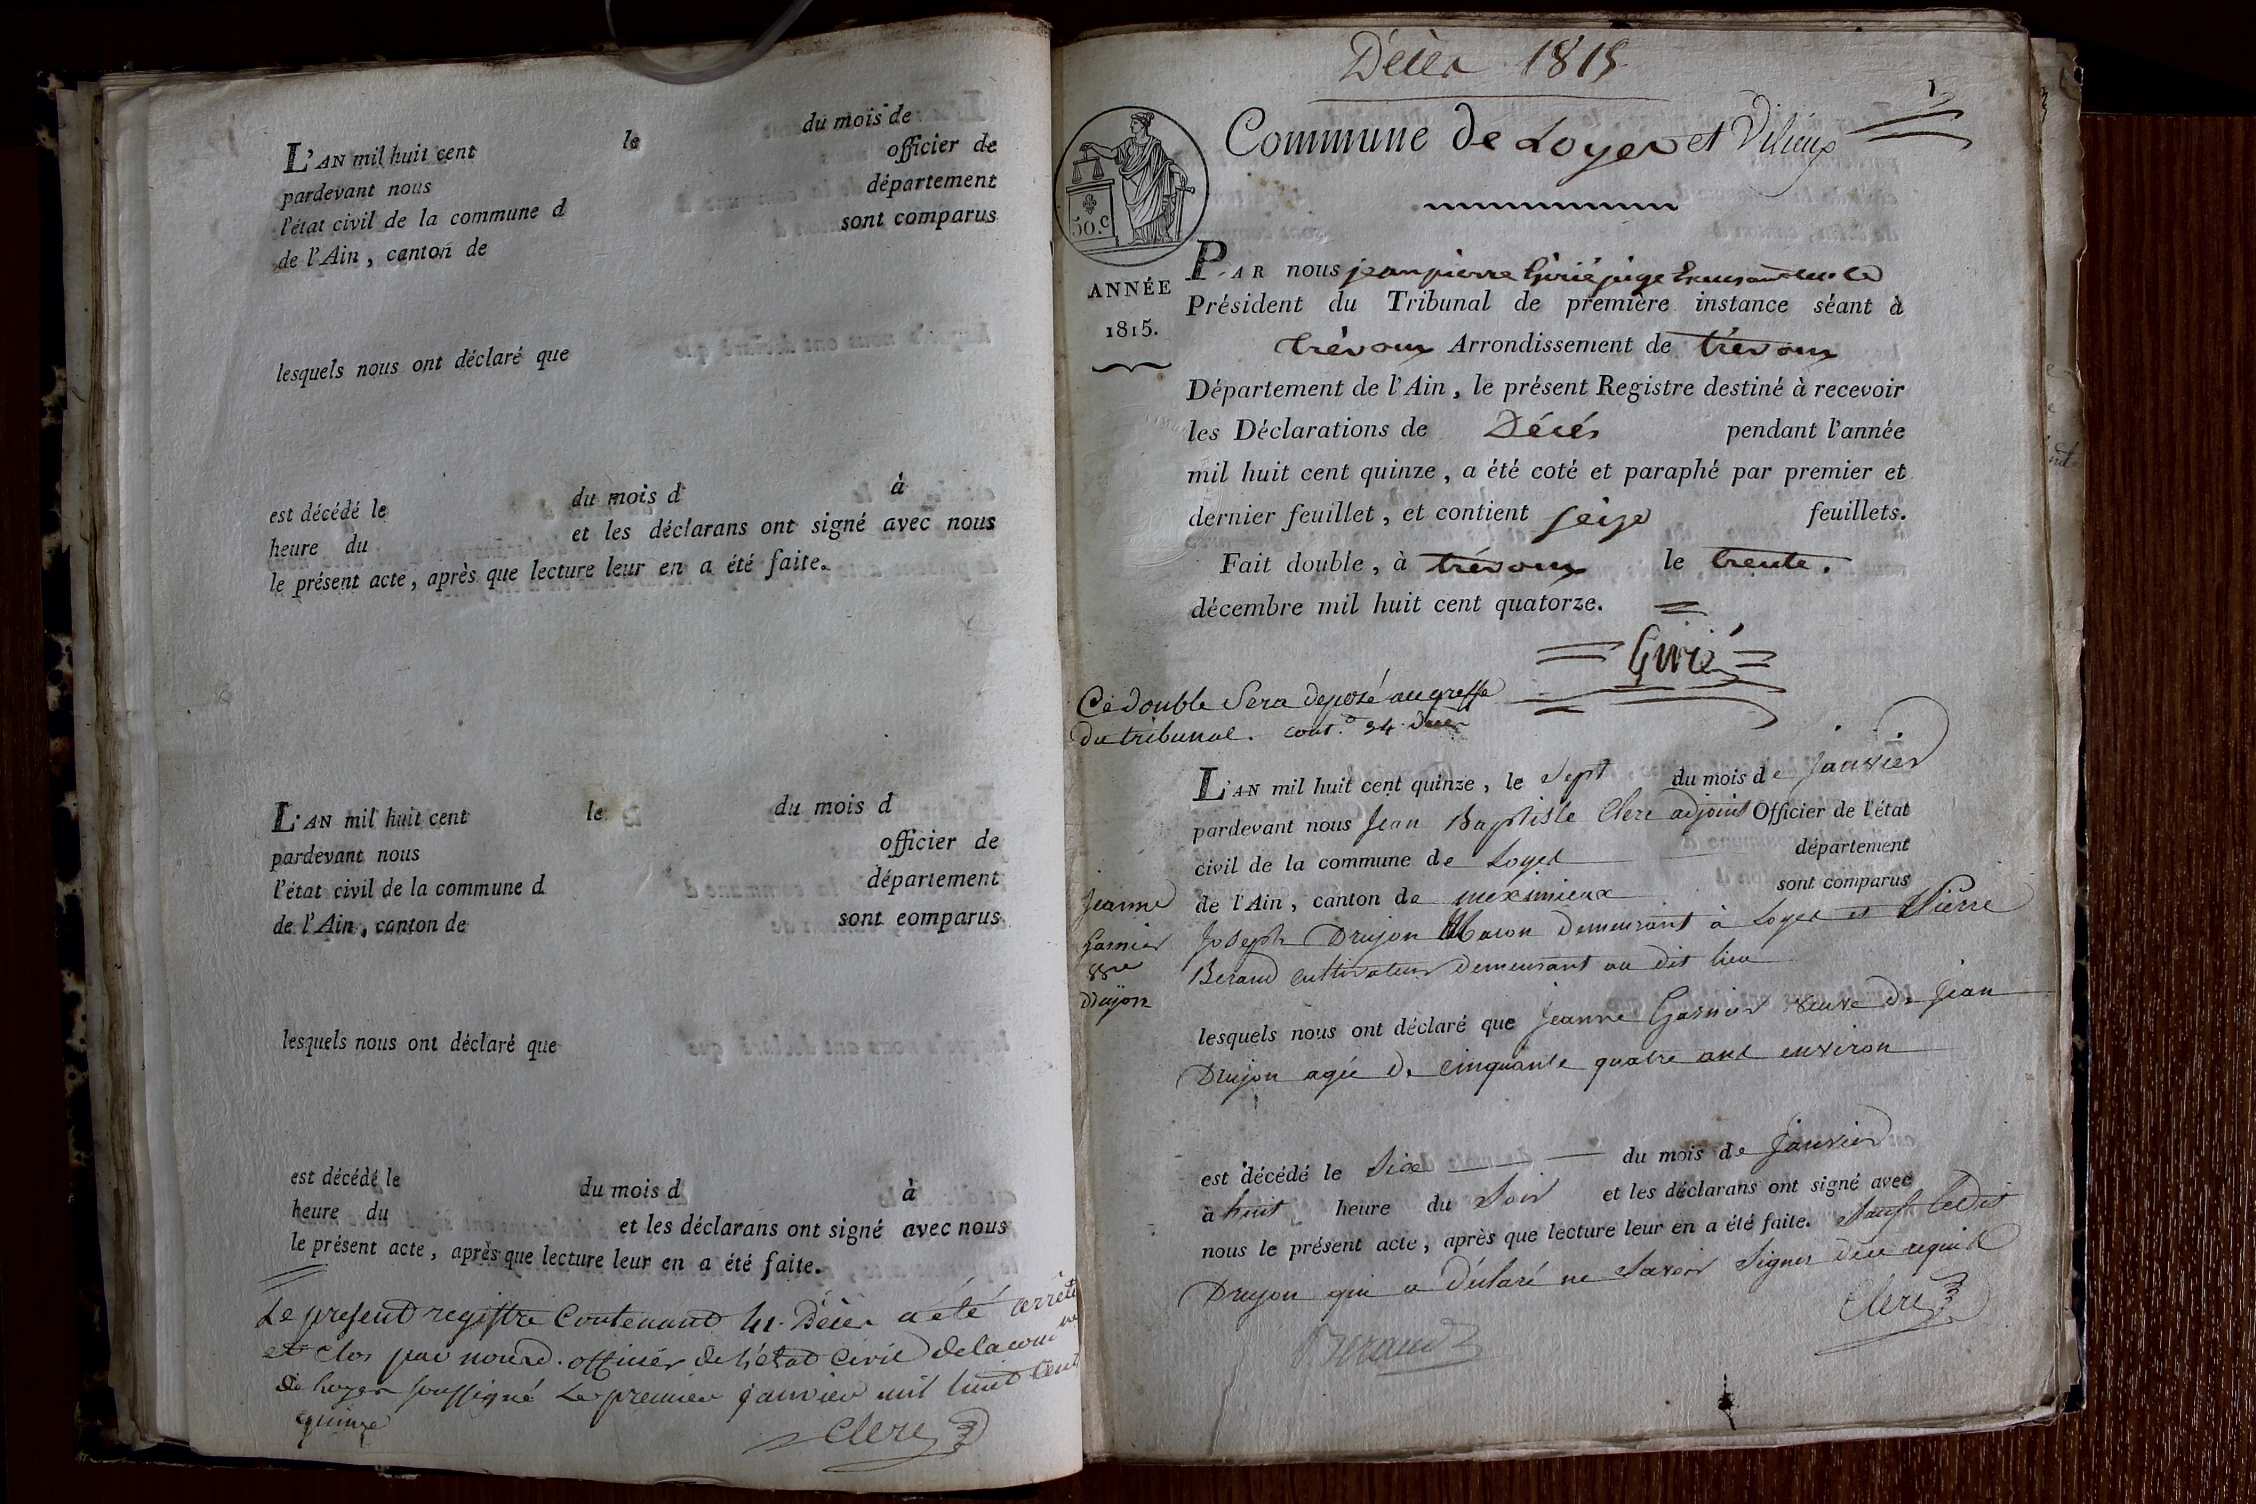 L'AN mil huit cent le du mois de
pardevant nous officier de
l'état civil de la commune d département
de l'Ain, canton de sont comparus
lesquels nous ont déclaré que
est décédé le du mois d à
heure du et les déclarans ont signé avec nous
le présent acte, après que lecture leur en a été faite.
L'AN mil huit cent le du mois d
pardevant nous officier de
l'état civil de la commune d département
de l'Ain, canton de sont comparus
lesquels nous ont déclaré que
est décédé le du mois d à
heure du et les déclarans ont signé avec nous
le présent acte, après que lecture leur en a été faite.
Le present registre Contenant 41. Décès a été arrêté
et clos par nous officier de l'état Civil de la com ne
de Loyes soussigné Le premier janvier mil huit Cent
quinze
Clerc
Décès 1815
1
Commune de Loyes et Vilieux
50.c
ANNÉE
1815.
PAR nous jean pierre Girié juge Exerçant sur le
Président du Tribunal de première instance séant à
trévoux Arrondissement de trévoux
Département de l'Ain, le présent Registre destiné à recevoir
les Déclarations de Décés pendant l'année
mil huit cent quinze, a été coté et paraphé par premier et
dernier feuillet, et contient seize feuillets.
Fait double, à trévoux le trente.
décembre mil huit cent quatorze.
Girié
Ce double Sera deposé au greffe
du tribunal. cont. 34 Décès
L'AN mil huit cent quinze, le Sept du mois de janvier
pardevant nous Jean Baptiste Clerc adjoint Officier de l'état
civil de la commune de Loyes département
de l'Ain, canton de meximieux sont comparus
Joseph Drujon Macon Demeurant à Loyes et Pierre
Beraud cultivateur demeurant au dit lieu
Jeanne
Garnier
vve
Drujon
lesquels nous ont déclaré que jeanne Garnier veuve de jean
Drujon agée de cinquante quatre ans environ
est décédé le Six du mois de janvier
à huit heure du Soir et les déclarans ont signé avec
nous le présent acte, après que lecture leur en a été faite. Sauf ledit
Drujon qui a déclaré ne Savoir Signer de ce requis
Clerc
Beraud